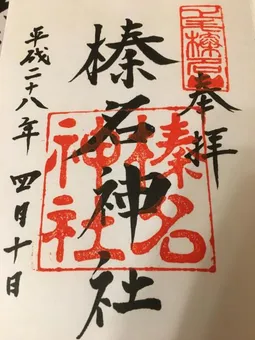 上毛榛名
奉拝
榛名神社
榛名
神社
平成二十八年 四月十日